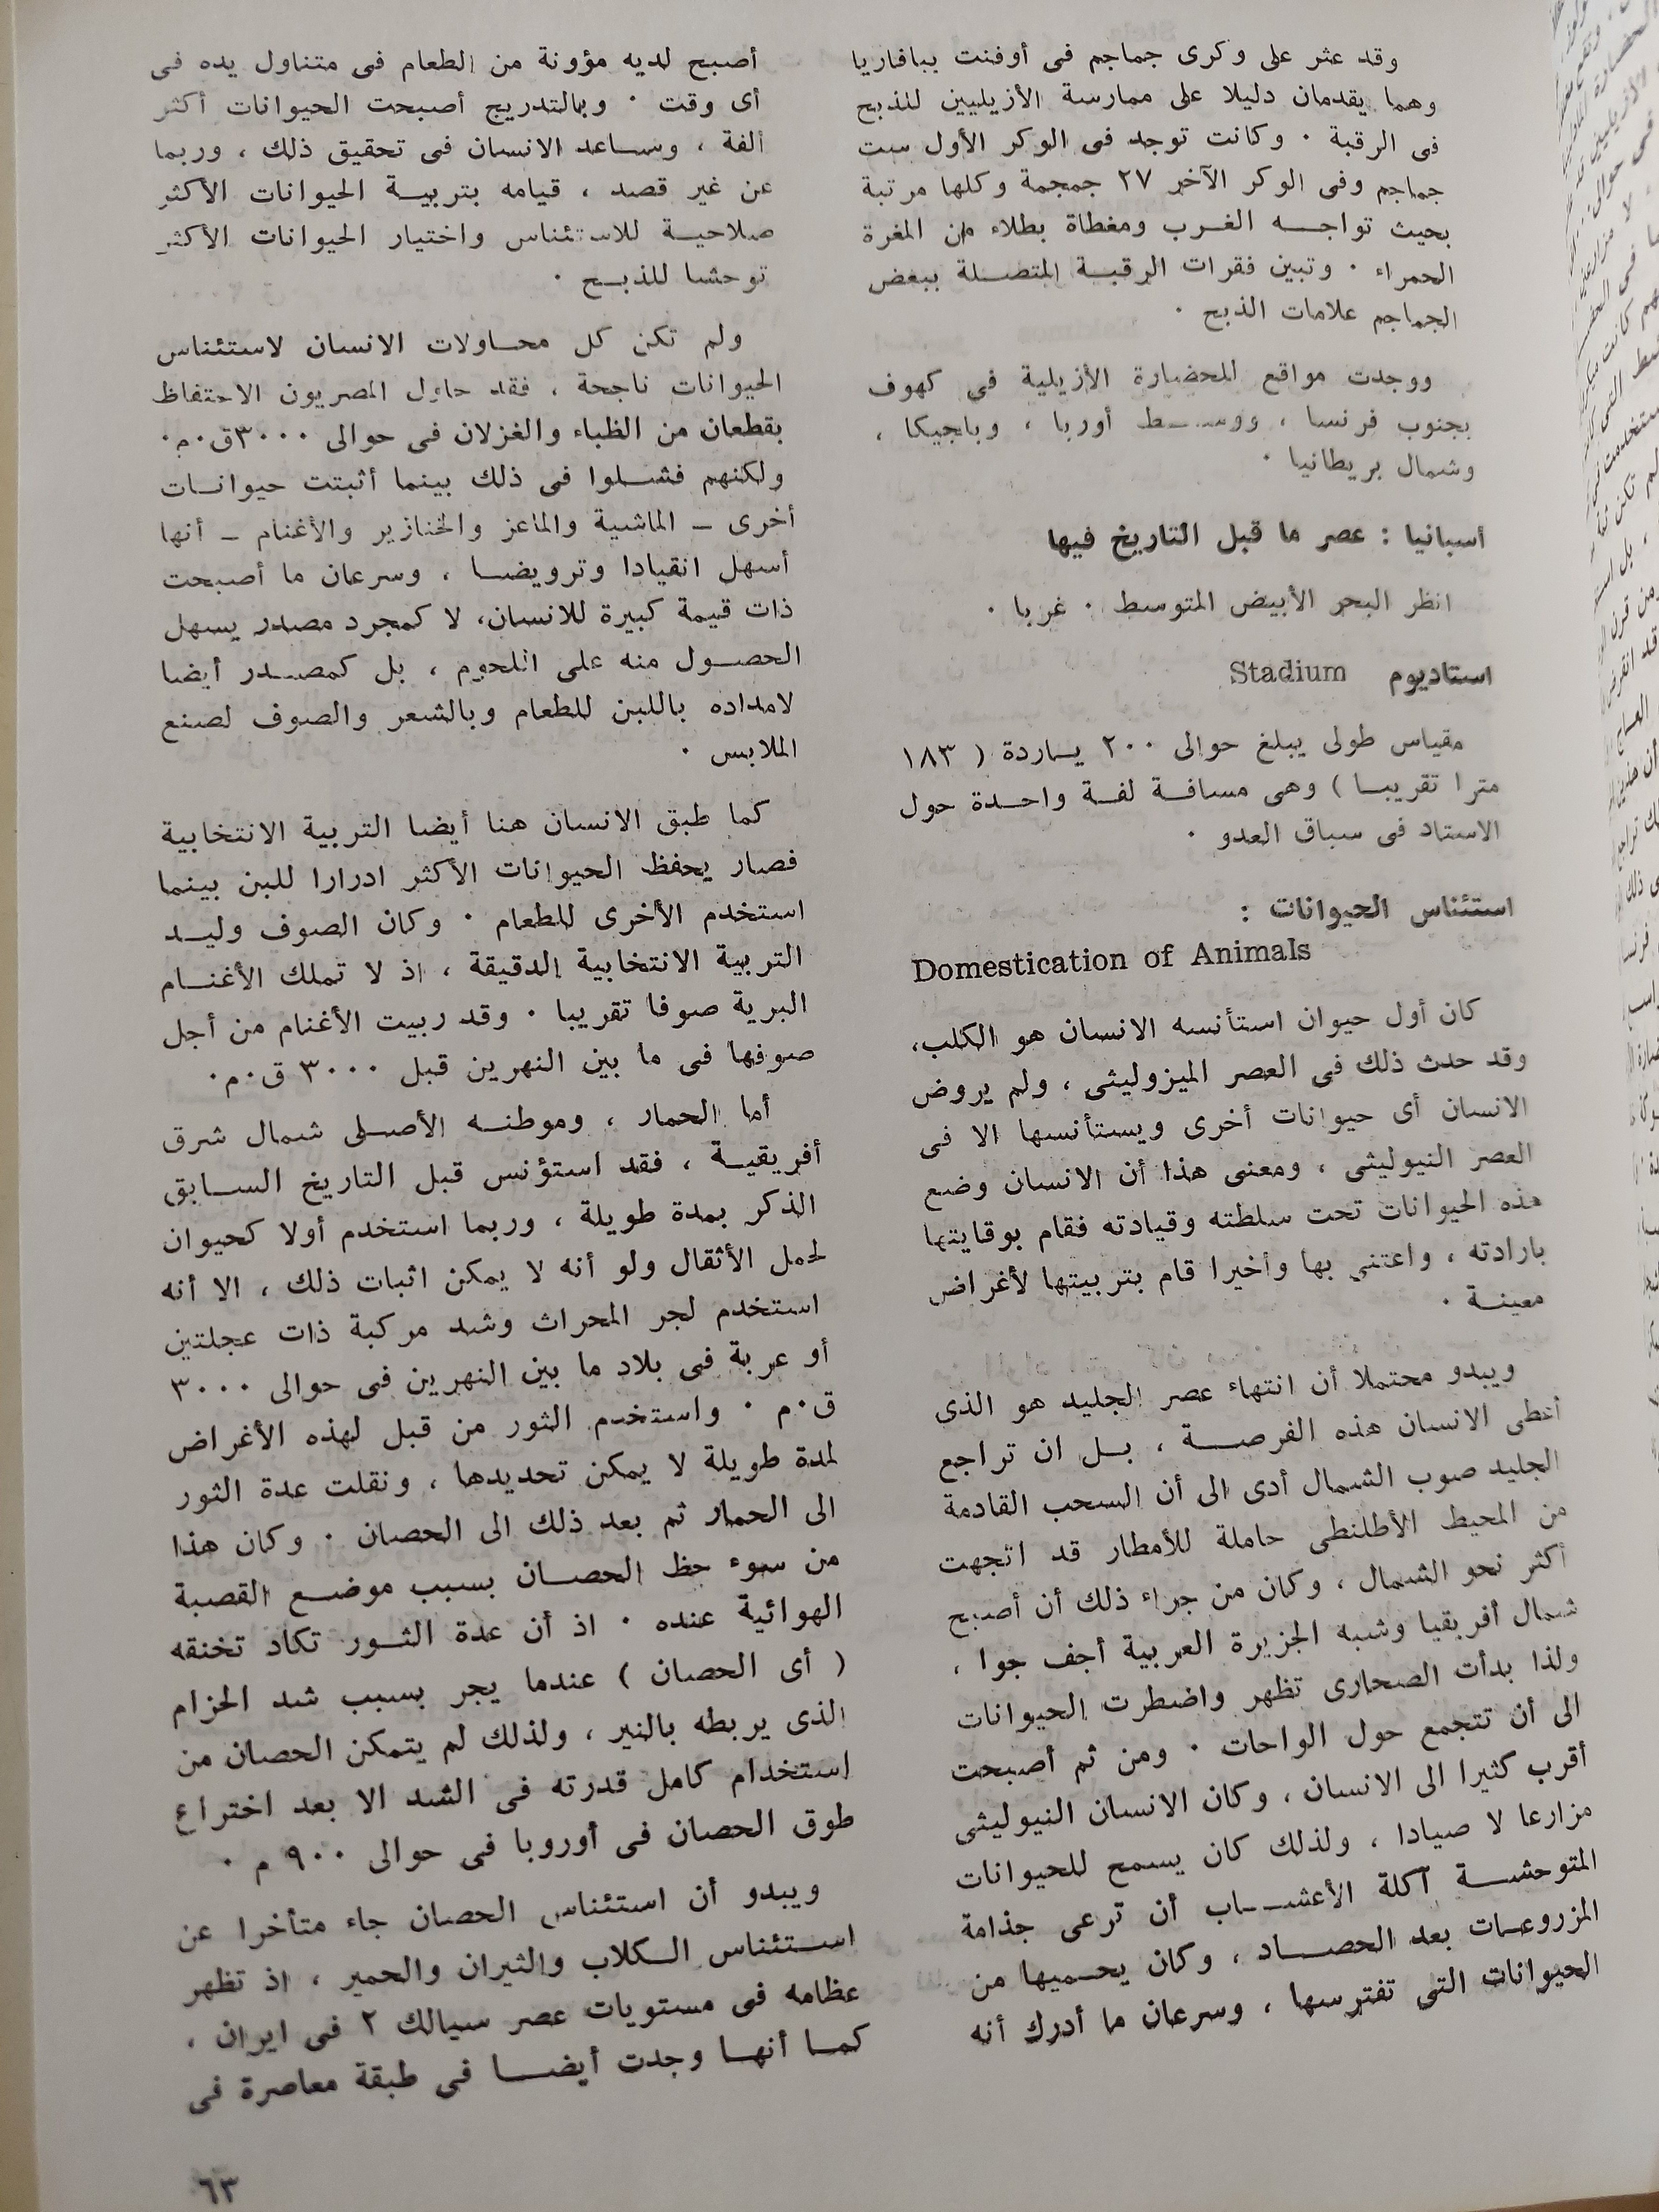 وقد عثر على وكرى جماجم فى أوفنت ببافاريا
وهما يقدمان دليلا على ممارسة الأزيليين للذبح
فى الرقبة ٠ وكانت توجد فى الوكر الأول ست
جماجم وفى الوكر الآخر ٢٧ جمجمة وكلها مرتبة
بحيث تواجه الغرب ومغطاة بطلاء من المغرة
الحمراء ٠ وتبين فقرات الرقبة المتصلة ببعض
الجماجم علامات الذبح ٠
ووجدت مواقع للحضارة الأزيلية فى كهوف
بجنوب فرنسا ، ووسط أوربا ، وبلجيكا ،
وشمال بريطانيا ٠
أسبانيا : عصر ما قبل التاريخ فيها
انظر البحر الأبيض المتوسط ٠ غربا ٠
استاديوم Stadium
مقياس طولى يبلغ حوالى ٢٠٠ ياردة ( ١٨٣
مترا تقريبا ) وهى مسافة لفة واحدة حول
الاستاد فى سباق العدو ٠
استئناس الحيوانات :
Domestication of Animals
كان أول حيوان استأنسه الانسان هو الكلب،
وقد حدث ذلك فى العصر الميزوليثى ، ولم يروض
الانسان أى حيوانات أخرى ويستأنسها الا فى
العصر النيوليثى ، ومعنى هذا أن الانسان وضع
هذه الحيوانات تحت سلطته وقيادته فقام بوقايتها
بارادته ، واعتنى بها وأخيرا قام بتربيتها لأغراض
معينة ٠
ويبدو محتملا أن انتهاء عصر الجليد هو الذى
أعطى الانسان هذه الفرصة ، بل ان تراجع
الجليد صوب الشمال أدى الى أن السحب القادمة
من المحيط الأطلنطى حاملة للأمطار قد اتجهت
أكثر نحو الشمال ، وكان من جراء ذلك أن أصبح
شمال أفريقيا وشبه الجزيرة العربية أجف جوا ،
ولذا بدأت الصحارى تظهر واضطرت الحيوانات
الى أن تتجمع حول الواحات ٠ ومن ثم أصبحت
أقرب كثيرا الى الانسان ، وكان الانسان النيوليثى
مزارعا لا صيادا ، ولذلك كان يسمح للحيوانات
المتوحشة آكلة الأعشاب أن ترعى جذامة
المزروعات بعد الحصاد ، وكان يحميها من
الحيوانات التى تفترسها ، وسرعان ما أدرك أنه
أصبح لديه مؤونة من الطعام فى متناول يده فى
أى وقت ٠ وبالتدريج أصبحت الحيوانات أكثر
ألفة ، وساعد الانسان فى تحقيق ذلك ، وربما
عن غير قصد ، قيامه بتربية الحيوانات الأكثر
صلاحية للاستئناس واختيار الحيوانات الأكثر
توحشا للذبح ٠
ولم تكن كل محاولات الانسان لاستئناس
الحيوانات ناجحة ، فقد حاول المصريون الاحتفاظ
بقطعان من الظباء والغزلان فى حوالى ٣٠٠٠ق٠م٠
ولكنهم فشلوا فى ذلك بينما أثبتت حيوانات
أخرى – الماشية والماعز والخنازير والأغنام – أنها
أسهل انقيادا وترويضا ، وسرعان ما أصبحت
ذات قيمة كبيرة للانسان، لا كمجرد مصدر يسهل
الحصول منه على اللحوم ، بل كمصدر أيضا
لامداده باللبن للطعام وبالشعر والصوف لصنع
الملابس ٠
كما طبق الانسان هنا أيضا التربية الانتخابية
فصار يحفظ الحيوانات الأكثر ادرارا للبن بينما
استخدم الأخرى للطعام ٠ وكان الصوف وليد
التربية الانتخابية الدقيقة ، اذ لا تملك الأغنام
البرية صوفا تقريبا ٠ وقد ربيت الأغنام من أجل
صوفها فى ما بين النهرين قبل ٣٠٠٠ ق٠م٠
أما الحمار ، وموطنه الأصلى شمال شرق
أفريقية ، فقد استؤنس قبل التاريخ السابق
الذكر بمدة طويلة ، وربما استخدم أولا كحيوان
لحمل الأثقال ولو أنه لا يمكن اثبات ذلك ، الا أنه
استخدم لجر المحراث وشد مركبة ذات عجلتين
أو عربة فى بلاد ما بين النهرين فى حوالى ٣٠٠٠
ق٠م ٠ واستخدم الثور من قبل لهذه الأغراض
لمدة طويلة لا يمكن تحديدها ، ونقلت عدة الثور
الى الحمار ثم بعد ذلك الى الحصان ٠ وكان هذا
من سوء حظ الحصان بسبب موضع القصبة
الهوائية عنده ٠ اذ أن عدة الثور تكاد تخنقه
( أى الحصان ) عندما يجر بسبب شد الحزام
الذى يربطه بالنير ، ولذلك لم يتمكن الحصان من
استخدام كامل قدرته فى الشد الا بعد اختراع
طوق الحصان فى أوروبا فى حوالى ٩٠٠ م ٠
ويبدو أن استئناس الحصان جاء متأخرا عن
استئناس الكلاب والثيران والحمير ، اذ تظهر
عظامه فى مستويات عصر سيالك ٢ فى ايران ،
كما أنها وجدت أيضا فى طبقة معاصرة فى
٦٣